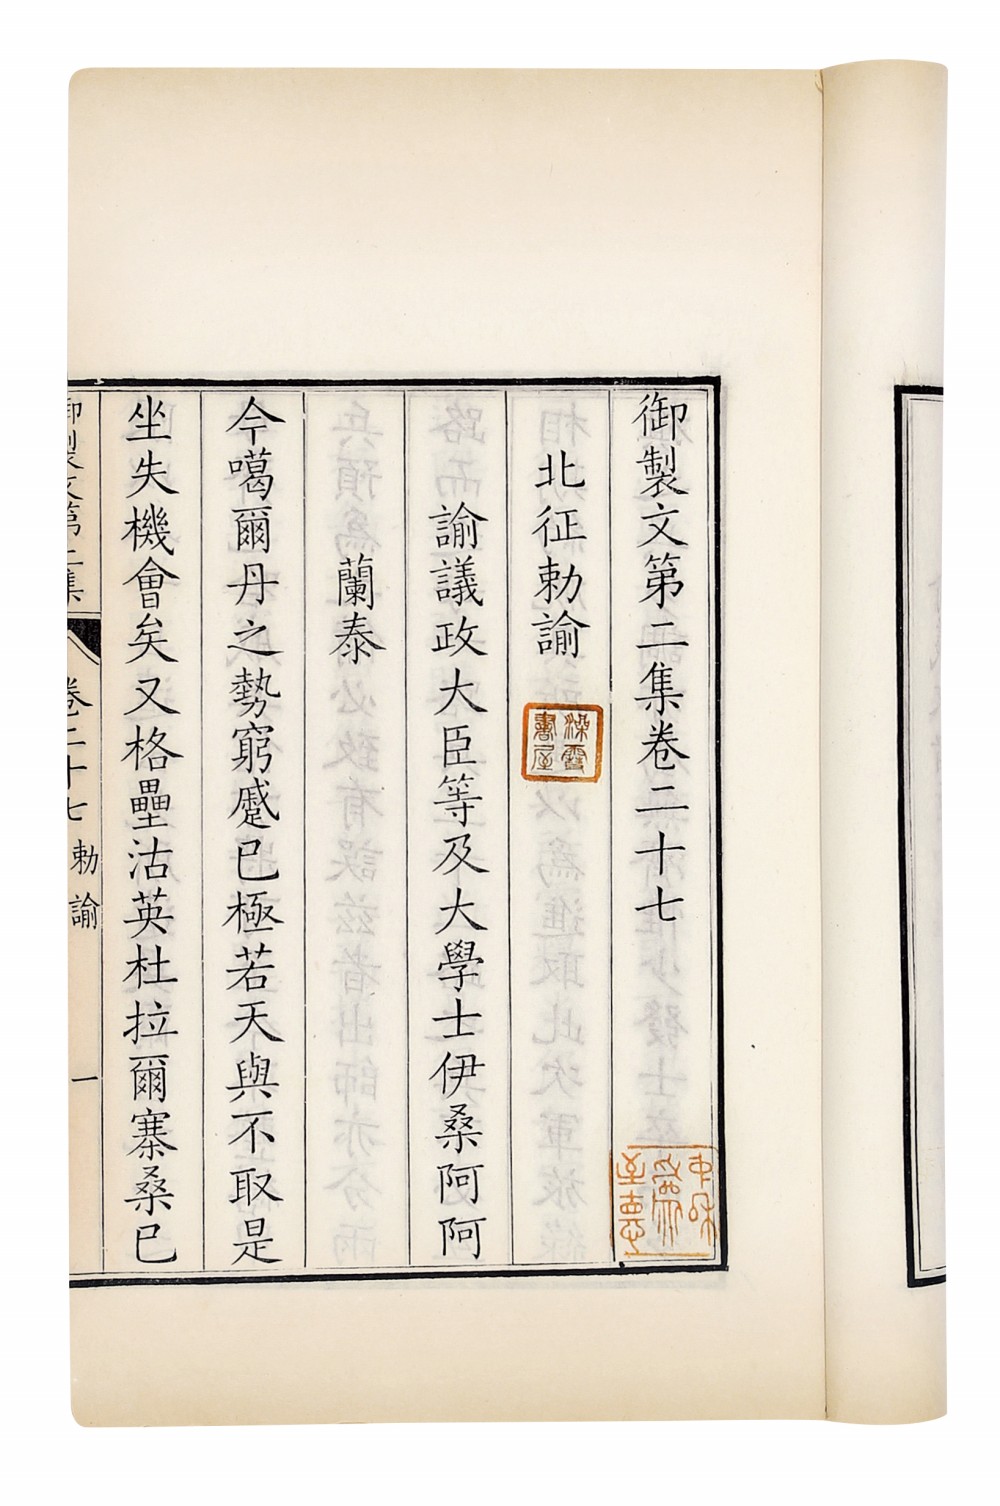 御製文第二集卷二十七
北征勅諭
諭議政大臣等及大學士伊桑阿阿
蘭泰
今噶爾丹之勢窮蹙已極若天與不取是
坐失機會矣又格壘沽英杜拉爾寨桑已
御製文第二集
卷二十七
勅諭
一
澡雪
書屋